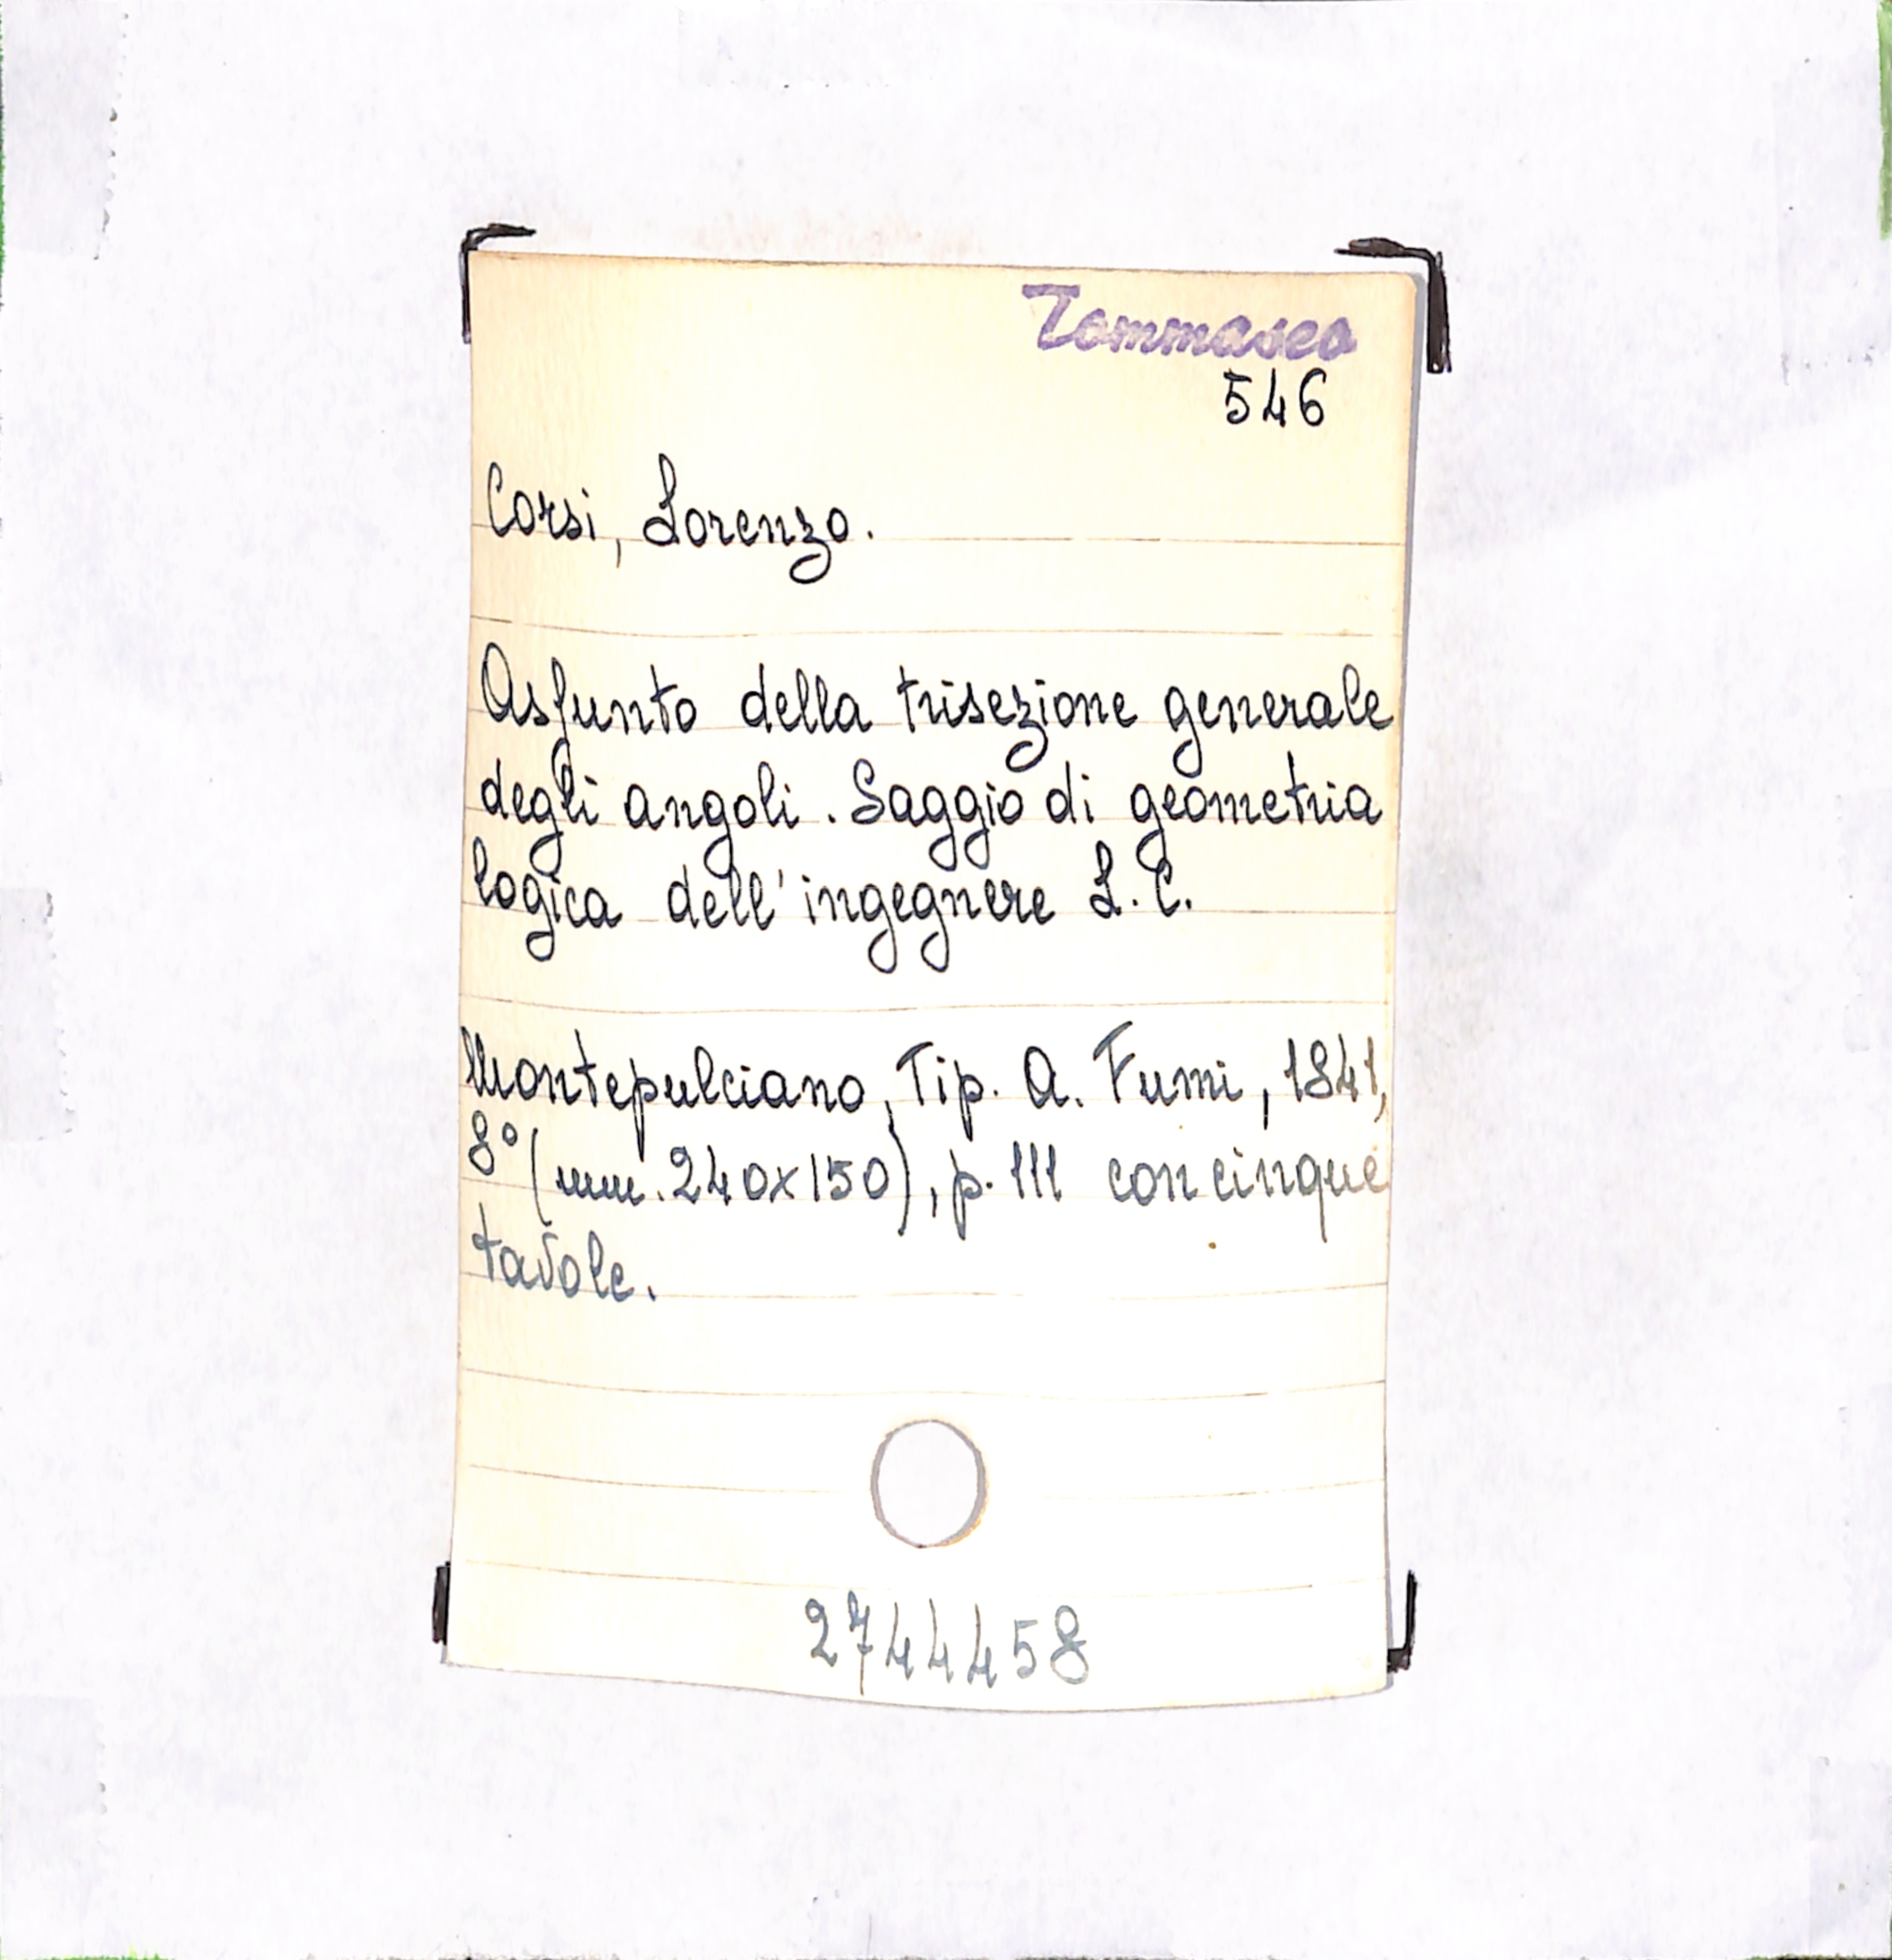 Tommaseo
546
Corsi, Lorenzo.
Asfunto della trisezione generale
degli angoli. Saggio di geometria
logica dell'ingegnere L. C.
Montepulciano, Tip. A. Fumi, 1841,
8° (mm. 240x150), p. 111 con cinque
tavole.
2744458